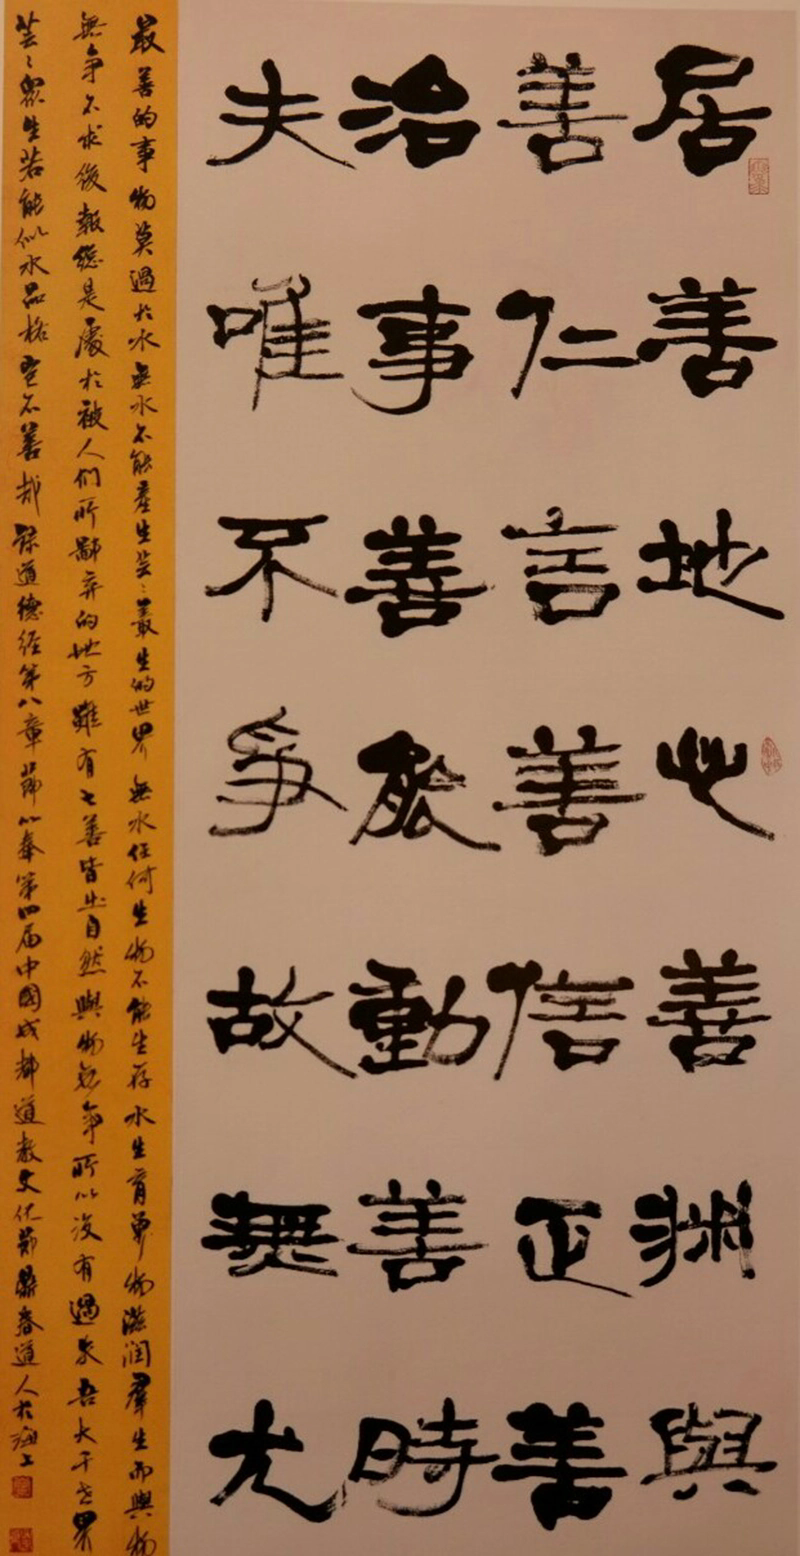 居善地心善渊與
善仁言善信正善
治事善能動善時
夫唯不争故無尤
最善的事物莫過於水無水不能產生芸〻叢生的世界無水任何生物不能生存水生育萬物滋潤羣生而與物
無争不求後報總是處於被人們所鄙弃的地方雖有七善皆出自然與物無争所以没有過失吾大千世界
芸〻眾生若能似水品格豈不善哉錄道德经第八章節以奉第四届中國成都道教文化節春道人於海上